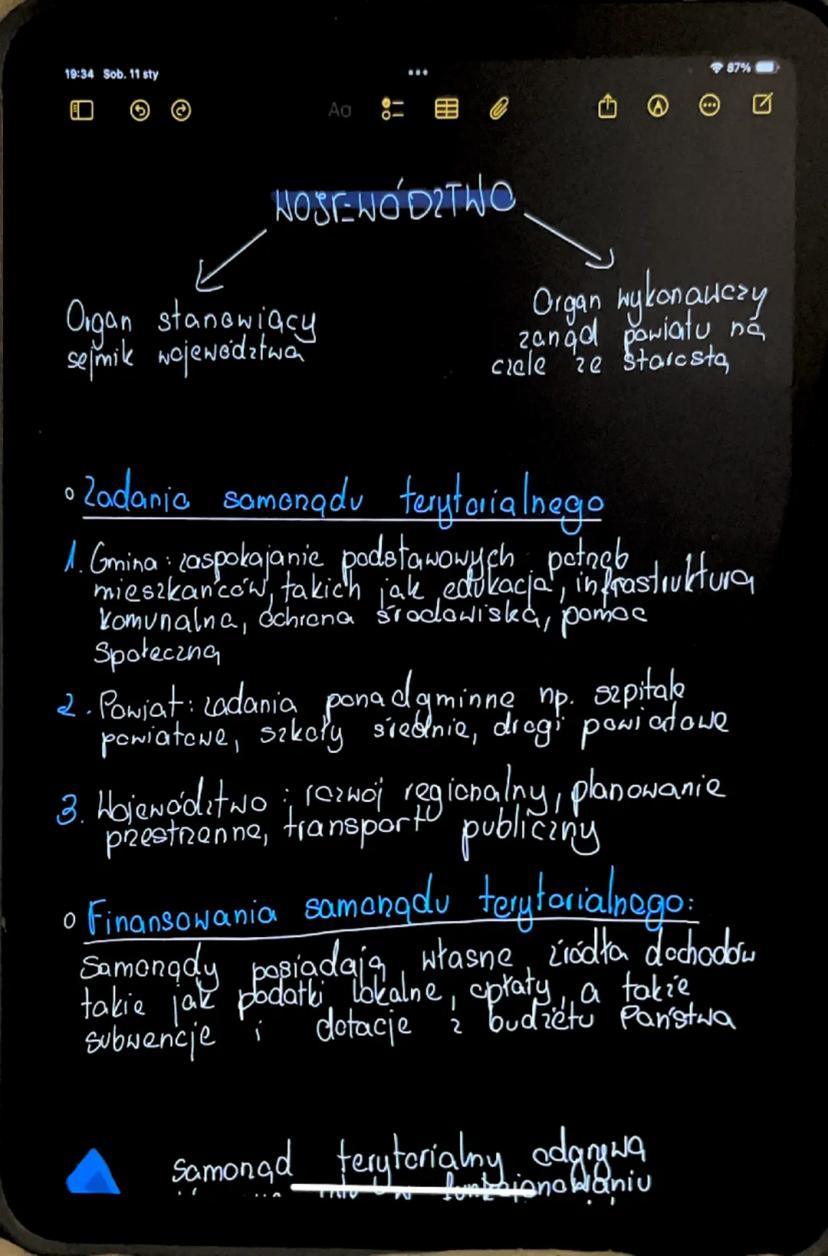 19:34 Sob. 11 sty
87%
Aa
WOJEWÓDZTWO
Organ stanowiący
sejmik województwa
Organ wykonawczy
zarząd powiatu na
czele ze starostą
Zadania samorządu terytorialnego
1. Gmina: zaspokajanie podstawowych potrzeb
mieszkańców, takich jak edukacja, infrastruktura
komunalna, ochrona środowiska, pomoc
Społeczna
2. Powiat: zadania ponadgminne np. szpitale
powiatowe, szkoły średnie, drogi powiatowe
3. Województwo: rozwój regionalny, planowanie
przestrzenne, transport publiczny
Finansowania samorządu terytorialnego:
Samorządy posiadają własne źródła dochodów
takie jak podatki lokalne, opłaty, a także
subwencje i dotacje z budżetu Państwa
samorząd terytorialny odgrywa
funkcjonowaniu